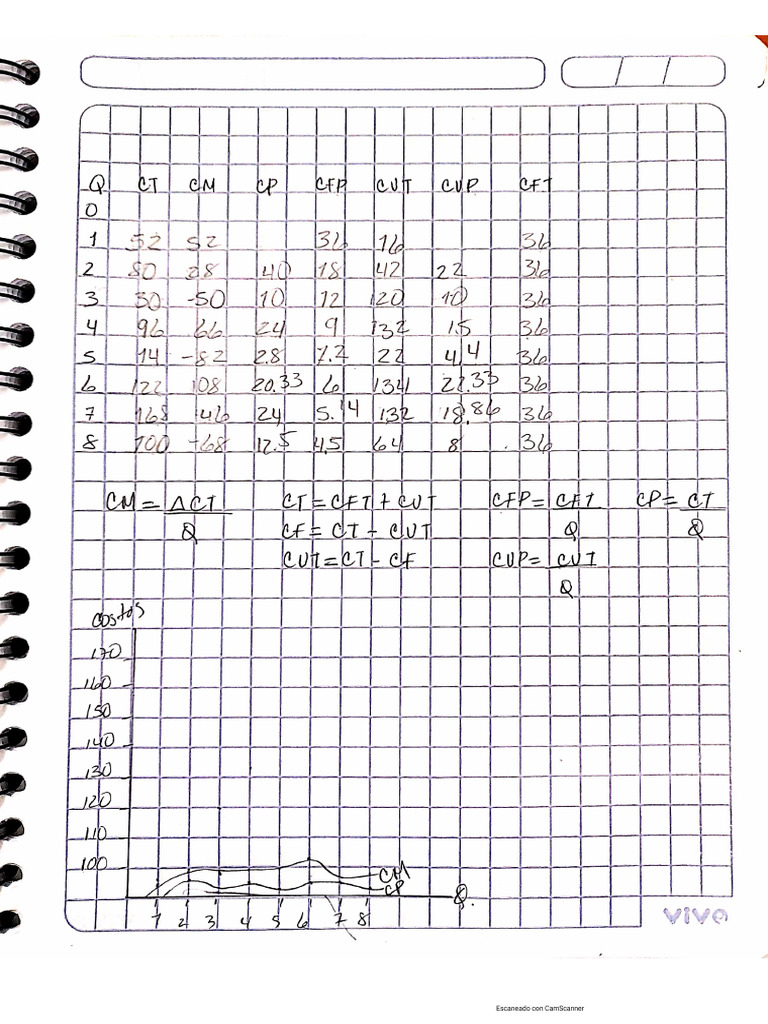 Q CT CM CP CFP CUT CUP CFT
0
1 52 52 36 16 36
2 80 28 40 18 42 22 36
3 30 -50 10 12 120 10 36
4 96 66 24 9 132 15 36
5 14 -82 2.8 7.2 22 4,4 36
6 122 108 20.33 6 134 22.33 36
7 168 46 24 5.14 132 18.86 36
8 100 -68 12.5 4.5 64 8 36
CM = ΔCT / Q CT = CFT + CUT CFP = CFT / Q CP = CT / Q
CF = CT - CUT
CUT = CT - CF CUP = CUT / Q
costos
170
160
150
140
130
120
110
100
CM
CP
Q.
1 2 3 4 5 6 7 8
vivo
Escaneado con CamScanner